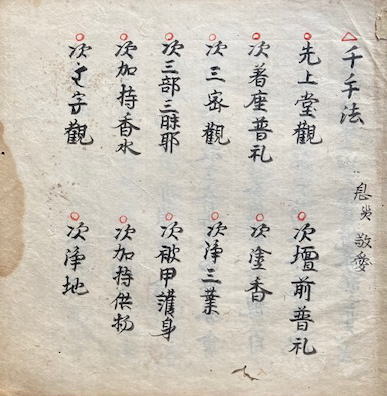 △千手法
息災 敬愛
先上堂觀 次壇前普礼
次著座普礼 次塗香
次三密觀 次淨三業
次三部三昧耶 次被甲護身
次加持香水 次加持供物
次字觀 次淨地